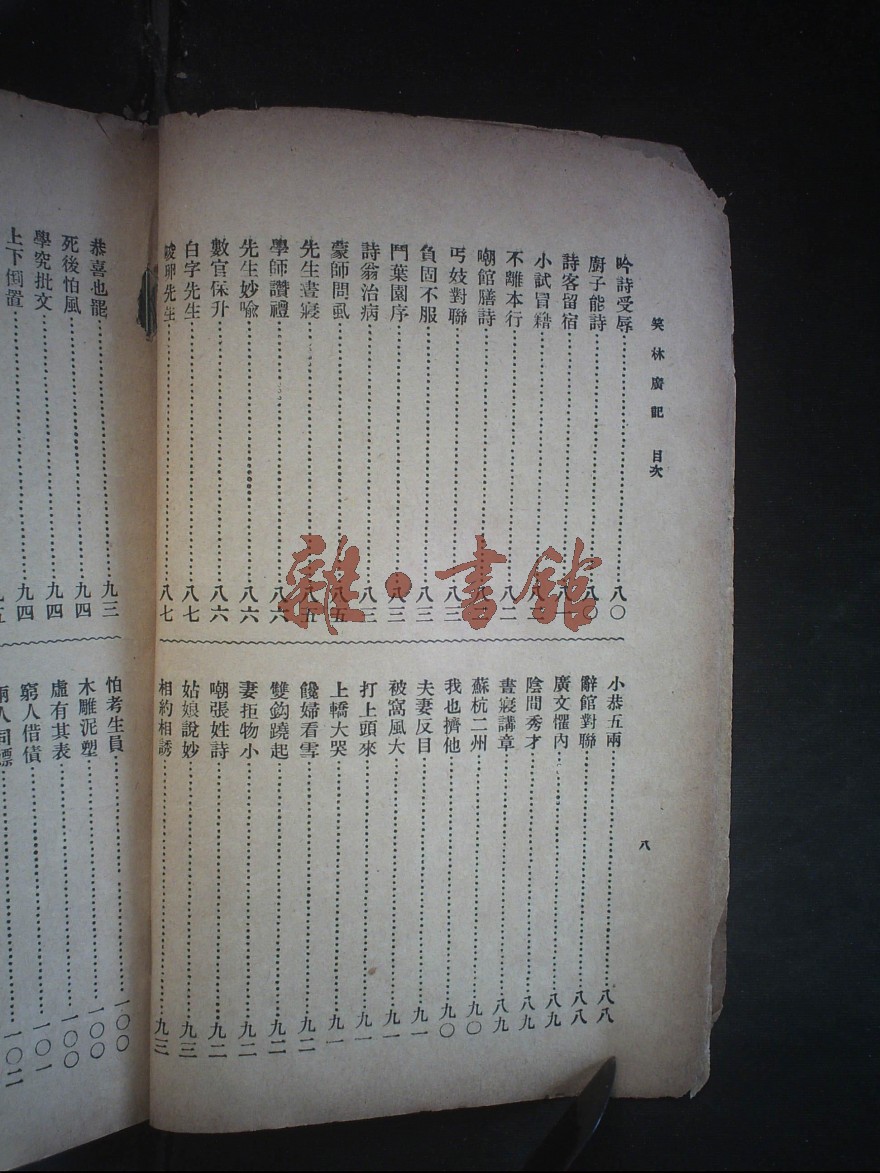 笑林廣記 目次
八
吟詩受辱……八〇
廚子能詩……八〇
詩客留宿……八一
小試冒籍……八二
不離本行……八二
嘲館膳詩……八三
丐妓對聯……八三
負固不服……八三
鬥葉園序……八三
詩翁治病……八三
蒙師問虱……八五
先生晝寢……八五
學師讚禮……八六
先生妙喩……八六
數官保升……八六
白字先生……八七
破卵先生……八七
小恭五兩……八八
辭館對聯……八八
廣文懼內……八九
陰間秀才……八九
晝寢講章……八九
蘇杭二州……九〇
我也擠他……九〇
夫妻反目……九一
被窩風大……九一
打上頭來……九一
上轎大哭……九一
饞婦看雪……九二
雙鈎蹺起……九二
妻拒物小……九二
嘲張姓詩……九二
姑娘說妙……九三
相約相誘……九三
恭喜也罷……九三
死後怕風……九四
學究批文……九四
上下倒置……九五
怕考生員……一〇〇
木雕泥塑……一〇〇
虛有其表……一〇〇
窮人借債……一〇一
兩人同嫖……一〇二
雜·書館